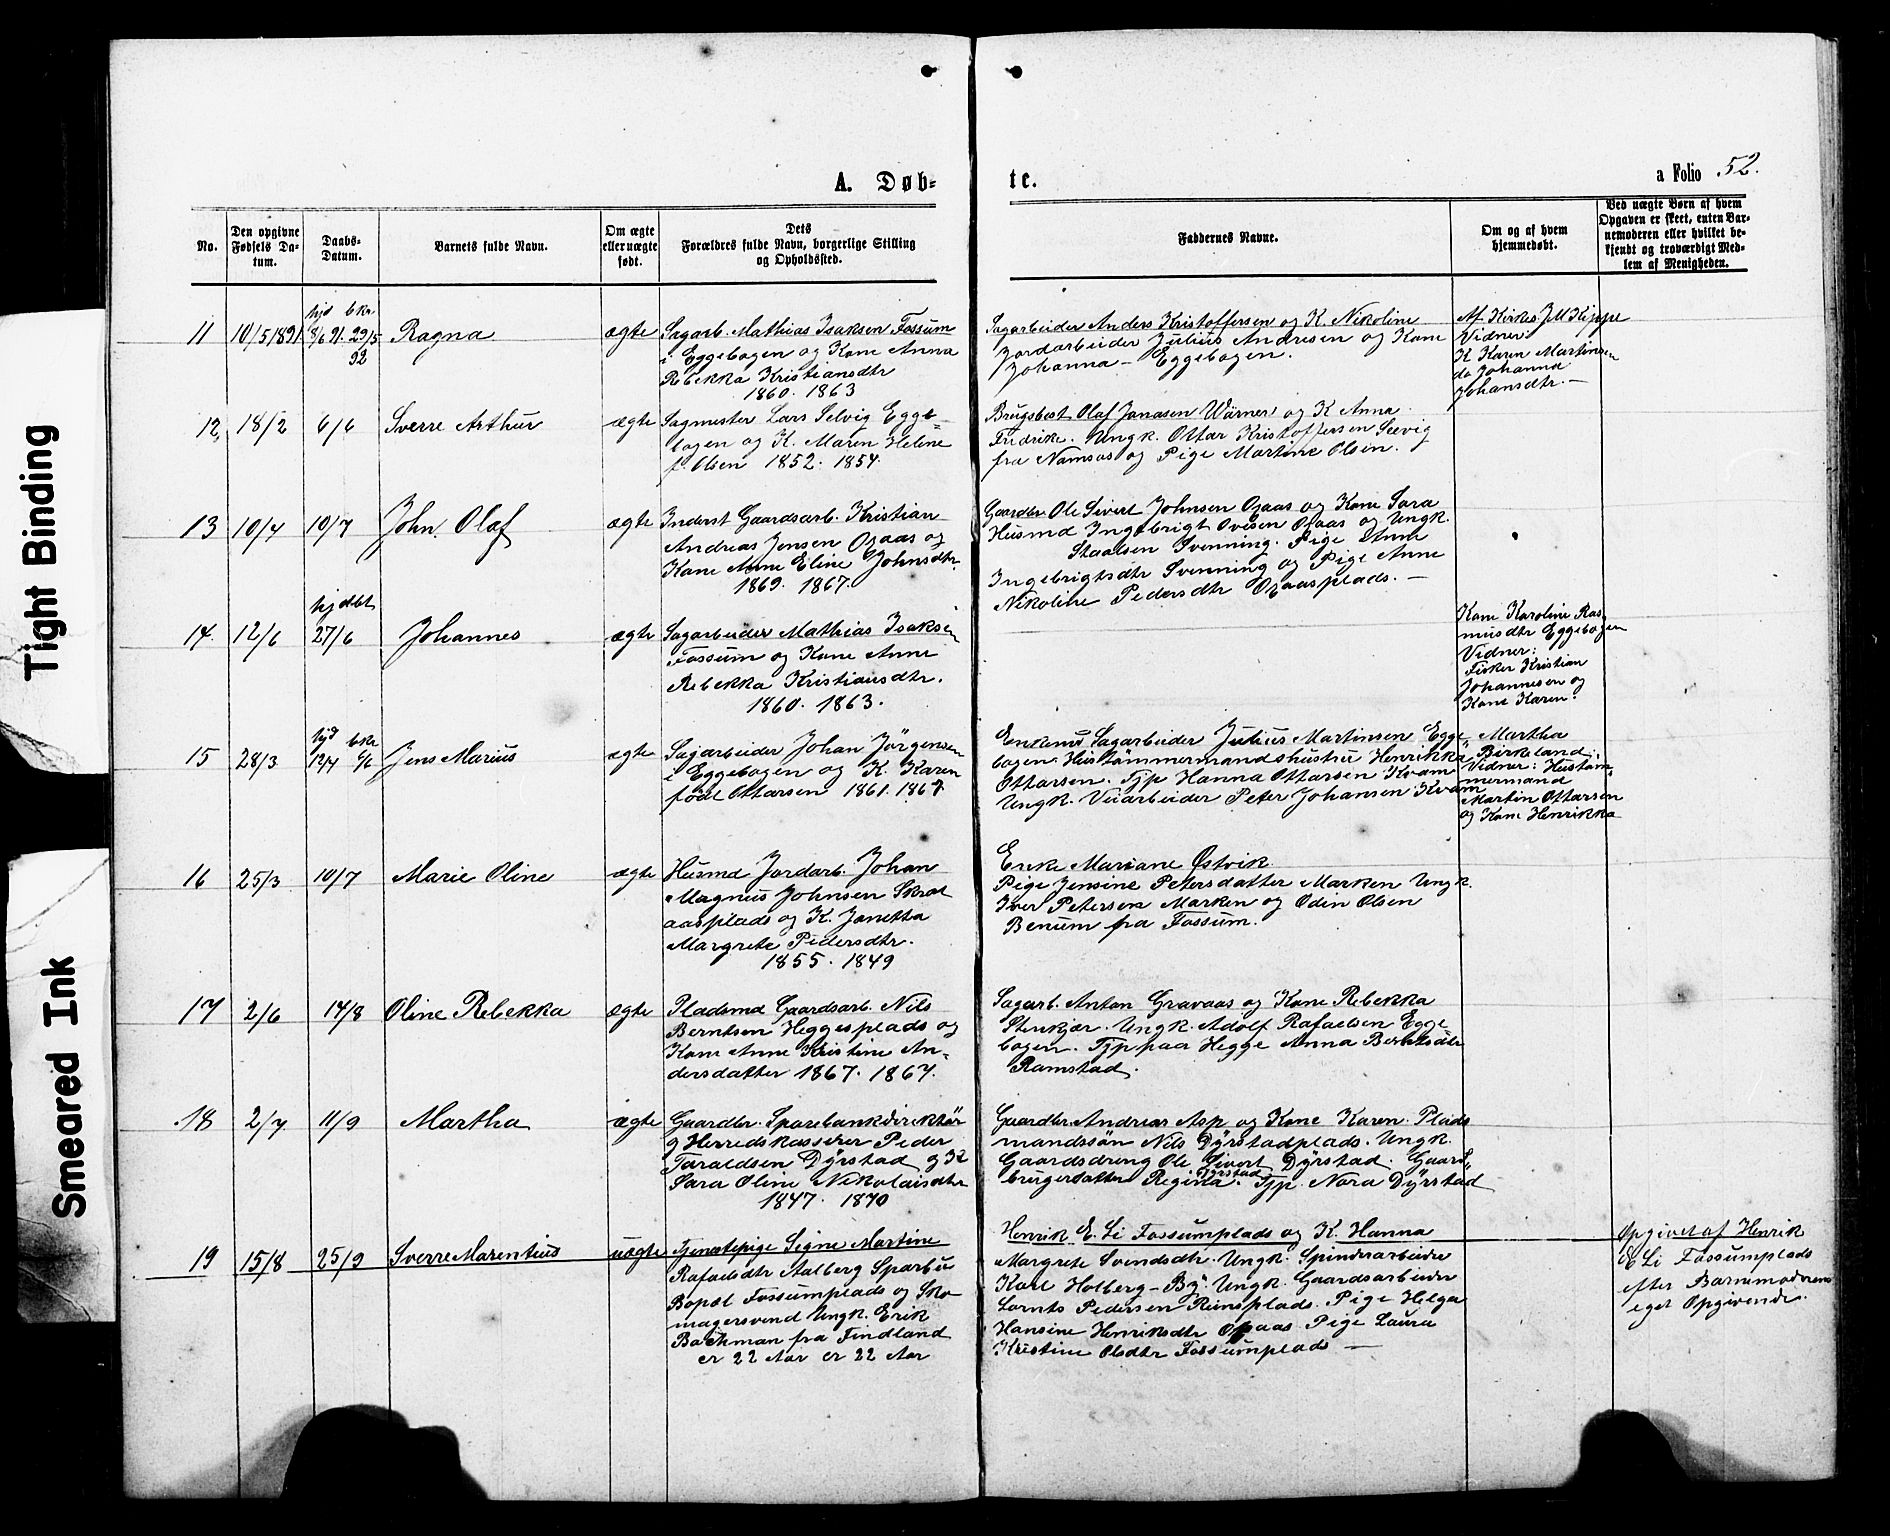 Tight Binding
Smeared Ink
A. Døb-
te.
a Folio 52.
No.
Den opgivne
Fødsels Da-
tum.
Daabs-
Datum.
Barnets fulde Navn.
Om ægte
eller uægte
født.
Dets
Forældres fulde Navn, borgerlige Stilling
og Opholdssted.
Faddernes Navne.
Om og af hvem
hjemmedøbt.
Ved uægte Børn af hvem
Opgaven er skeet, enten Bar-
nemoderen eller hvilket be-
kjendt og troværdigt Med-
lem af Menigheden.
hjd bkr.
11 10/5 1891. 8/6 91. 29/5 Ragna ægte
92
Sagarb. Mathias Isaksen Fossum
i Eggebogen og Kone Anna
Rebekka Kristiansdtr
1860. 1863
Sagarbeider Anders Kristoffersen og K. Nikoline
Jordarbeider Julius Andresen og Kone
Johanna - Eggebogen.
Af Kirkes J M Kippe
Vidner
K Karen Martinsen
do Johanna
Johansdtr. —
12, 18/2 6/6 Sverre Arthur ægte
Sagmester Lars Selvig Egge=
bogen og K. Maren Helene
f. Olsen 1852. 1854.
Brugsbest Olaf Jonasen Wärner og K Anna
Fredrike. Ungk. Ottar Kristoffersen Seevig
fra Namsos og Pige Martine Olsen.
13 10/4 10/7 John. Olaf ægte
Inderst Gaardsarb. Kristian
Andreas Jensen Oxaas og
Kone Anne Eline Johnsdtr.
1869. 1867.
Gaardbr. Ole Sivert Johnsen Oxaas og Kone Sara
Husmd Ingebrigt Ovesen Oxaas og Ungk.
Staalsen Svenning. Pige Anna
Ingebrigtsdtr Svenning og Pige Anne
Nikoline Pedersdtr Oxaasplads. —
hjdbt
14. 12/6 27/6 Johannes ægte
Sagarbeider Mathias Isaksen
Fossum og Kone Anne
Rebekka Kristiansdtr.
1860. 1863.
Kone Karoline Ras
musdtr Eggebogen
Vidner:
Fisker Kristian
Johannesen og
Kone Karen.
hjd bkr
15 28/3 13/4 6/6 Jens Marius ægte
Sagarbeider Johan Jørgensen
i Eggebogen og K. Karen
født Ottarsen 1861. 1867.
Enkemd Sagarbeider Julius Martinsen Egge
bogen. Hustømmermandshustru Henrikka
Ottarsen. Tjp Hanna Ottarsen Kvam
Ungk. Veiarbeider Peter Johansen Kvam
Martha
Birkeland.
Vidner: Hustøm
mermand
Martin Ottarsen
og Kone Henrikka
16 25/3 10/7 Marie Oline ægte
Husmd Jordarb. Johan
Magnus Johnsen Skrat
aasplads og K. Janetta
Margrete Pedersdtr.
1855. 1849
Enke Mariane Østvik
Pige Jensine Petersdatter Marken Ungk.
Iver Petersen Marken og Odin Olsen
Benum fra Fossum.
17 2/6 14/8 Oline Rebekka ægte
Pladsmd Gaardsarb. Nils
Berntsen Heggesplads og
Kone Anne Kristine An-
dersdatter 1867. 1867.
Sagarb. Anton Gravaas og Kone Rebekka
Stenkjær. Ungk. Adolf Rafaelsen Egge
bogen. Tjp paa Hegge Anna Berntsdtr
Ramstad.
18 2/7 11/9 Martha ægte
Gaardbr. Sparebankdirektør
og Herredskasserer Peder
Taraldsen Dyrstad og K
Sara Oline Nikolaisdtr
1847. 1870
Gaardbr. Andreas Asp og Kone Karen. Plads
mandssøn Nils Dyrstadplads. Ungk.
Gaardsdreng Ole Sivert Dyrstad. Gaard=
brugerdatter Regina Dyrstad. Tjp. Nora Dyrstad
19 15/8 25/9 Sverre Marentius uægte
Tjenestepige Signe Martine
Rafaelsdtr Aalberg Sparbu
Bopæl Fossumplads og Sko
magersvend Ungk. Erik
Bachman fra Findland
er 22 Aar er 22 Aar
Henrik E. Li Fossumplads og K. Hanna
Margrete Svendsdtr. Ungk. Spinderarbeider
Karl Holberg - By. Ungk. Gaardsarbeider
Lornts Pedersen Runsplads. Pige Helga
Hansine Henriksdtr Oxaas Pige Laura
Kristine Olsdtr Fossumplads —
Opgivet af Henrik
E Li Fossumplads
efter Barnemoderens
eget Opgivende.